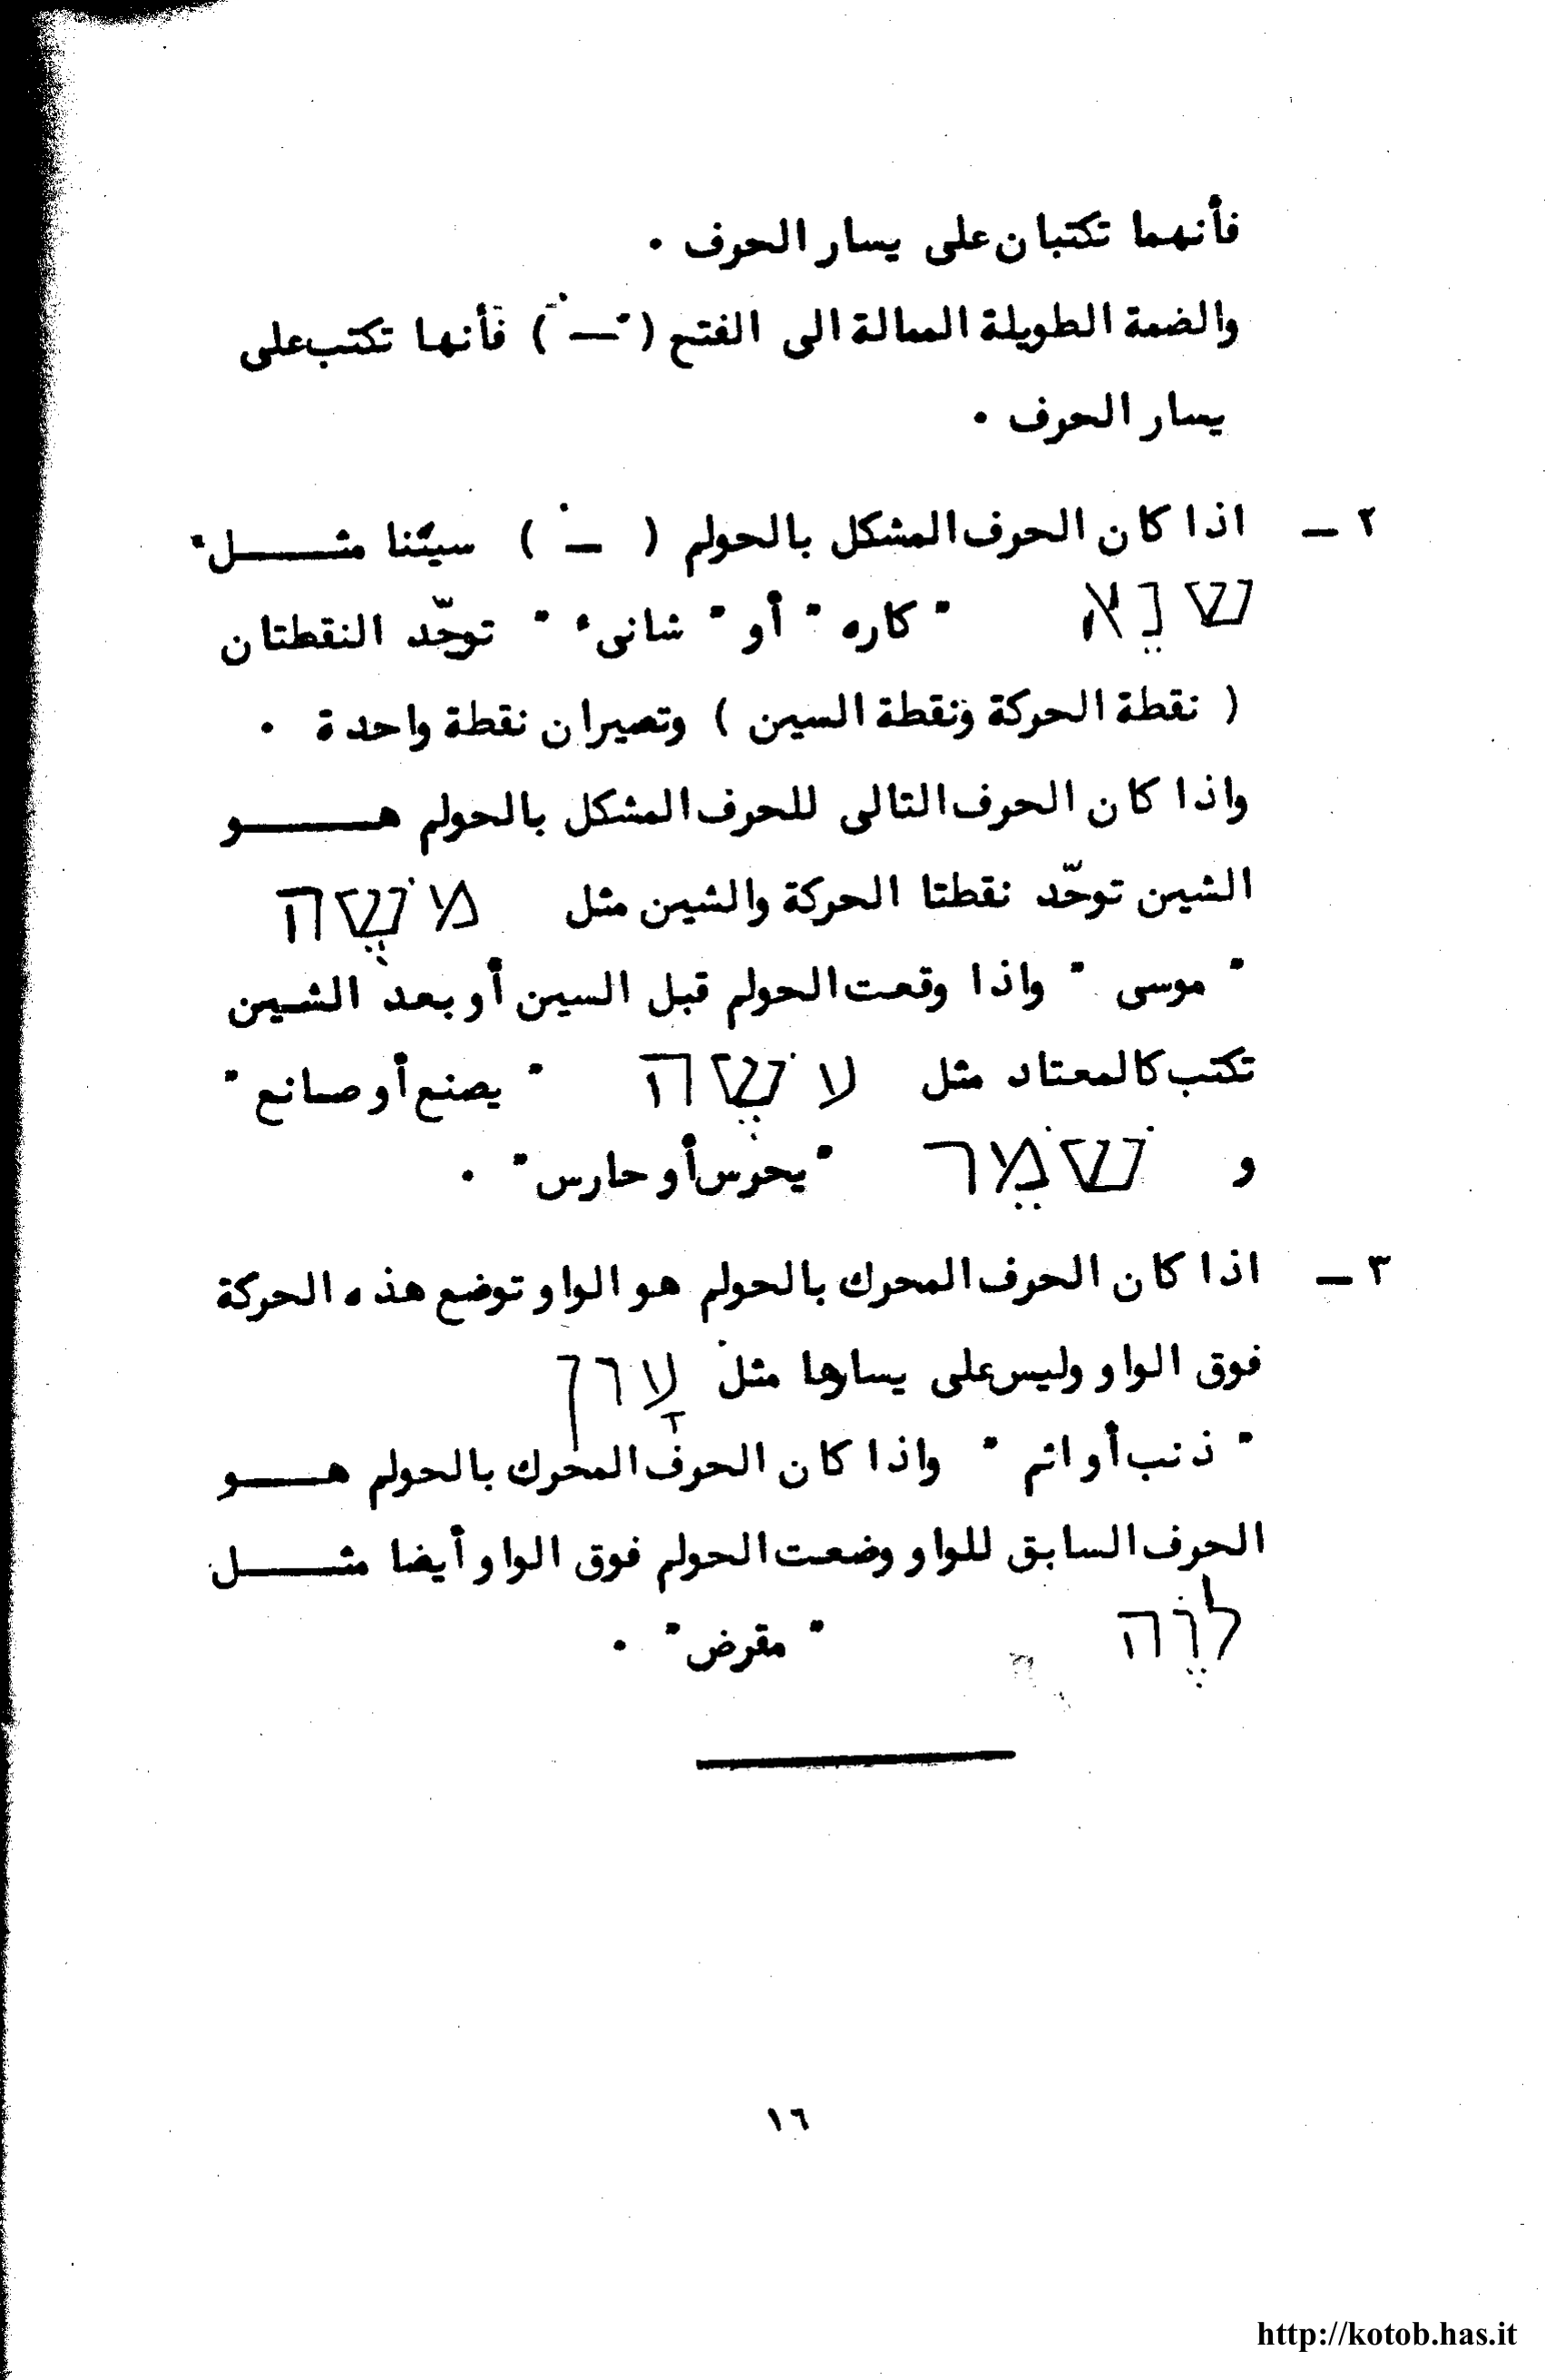 فأنهما تكتبان على يسار الحرف .
والضمة الطويلة الممالة الى الفتح ( ـֹ ) فأنها تكتب على
يسار الحرف .
٢ ـ اذا كان الحرف المشكل بالحولم ( ـֹ ) سيئنا مثــل"
שׂנֵא " كاره " أو " شانىء " توحّد النقطتان
( نقطة الحركة ونقطة السين ) وتصيران نقطة واحدة .
واذا كان الحرف التالى للحرف المشكل بالحولم هــو
الشين توحّد نقطتا الحركة والشين مثل מֹשֶה
" موسى " واذا وقعت الحولم قبل السين أو بعد الشيـن
تكتب كالمعتاد مثل עֹשֶׂה " يصنع أو صانع "
و שֹׁמֵר " يحرس أو حارس " .
٣ ـ اذا كان الحرف المحرك بالحولم هو الواو توضع هذه الحركة
فوق الواو وليس على يسارها مثل עָוֹן
" ذنب أو اثم " واذا كان الحرف المحرك بالحولم هــو
الحرف السابق للواو وضعت الحولم فوق الواو أيضا مثــل
לֹוֶה " مقرض " .
١٦
http://kotob.has.it